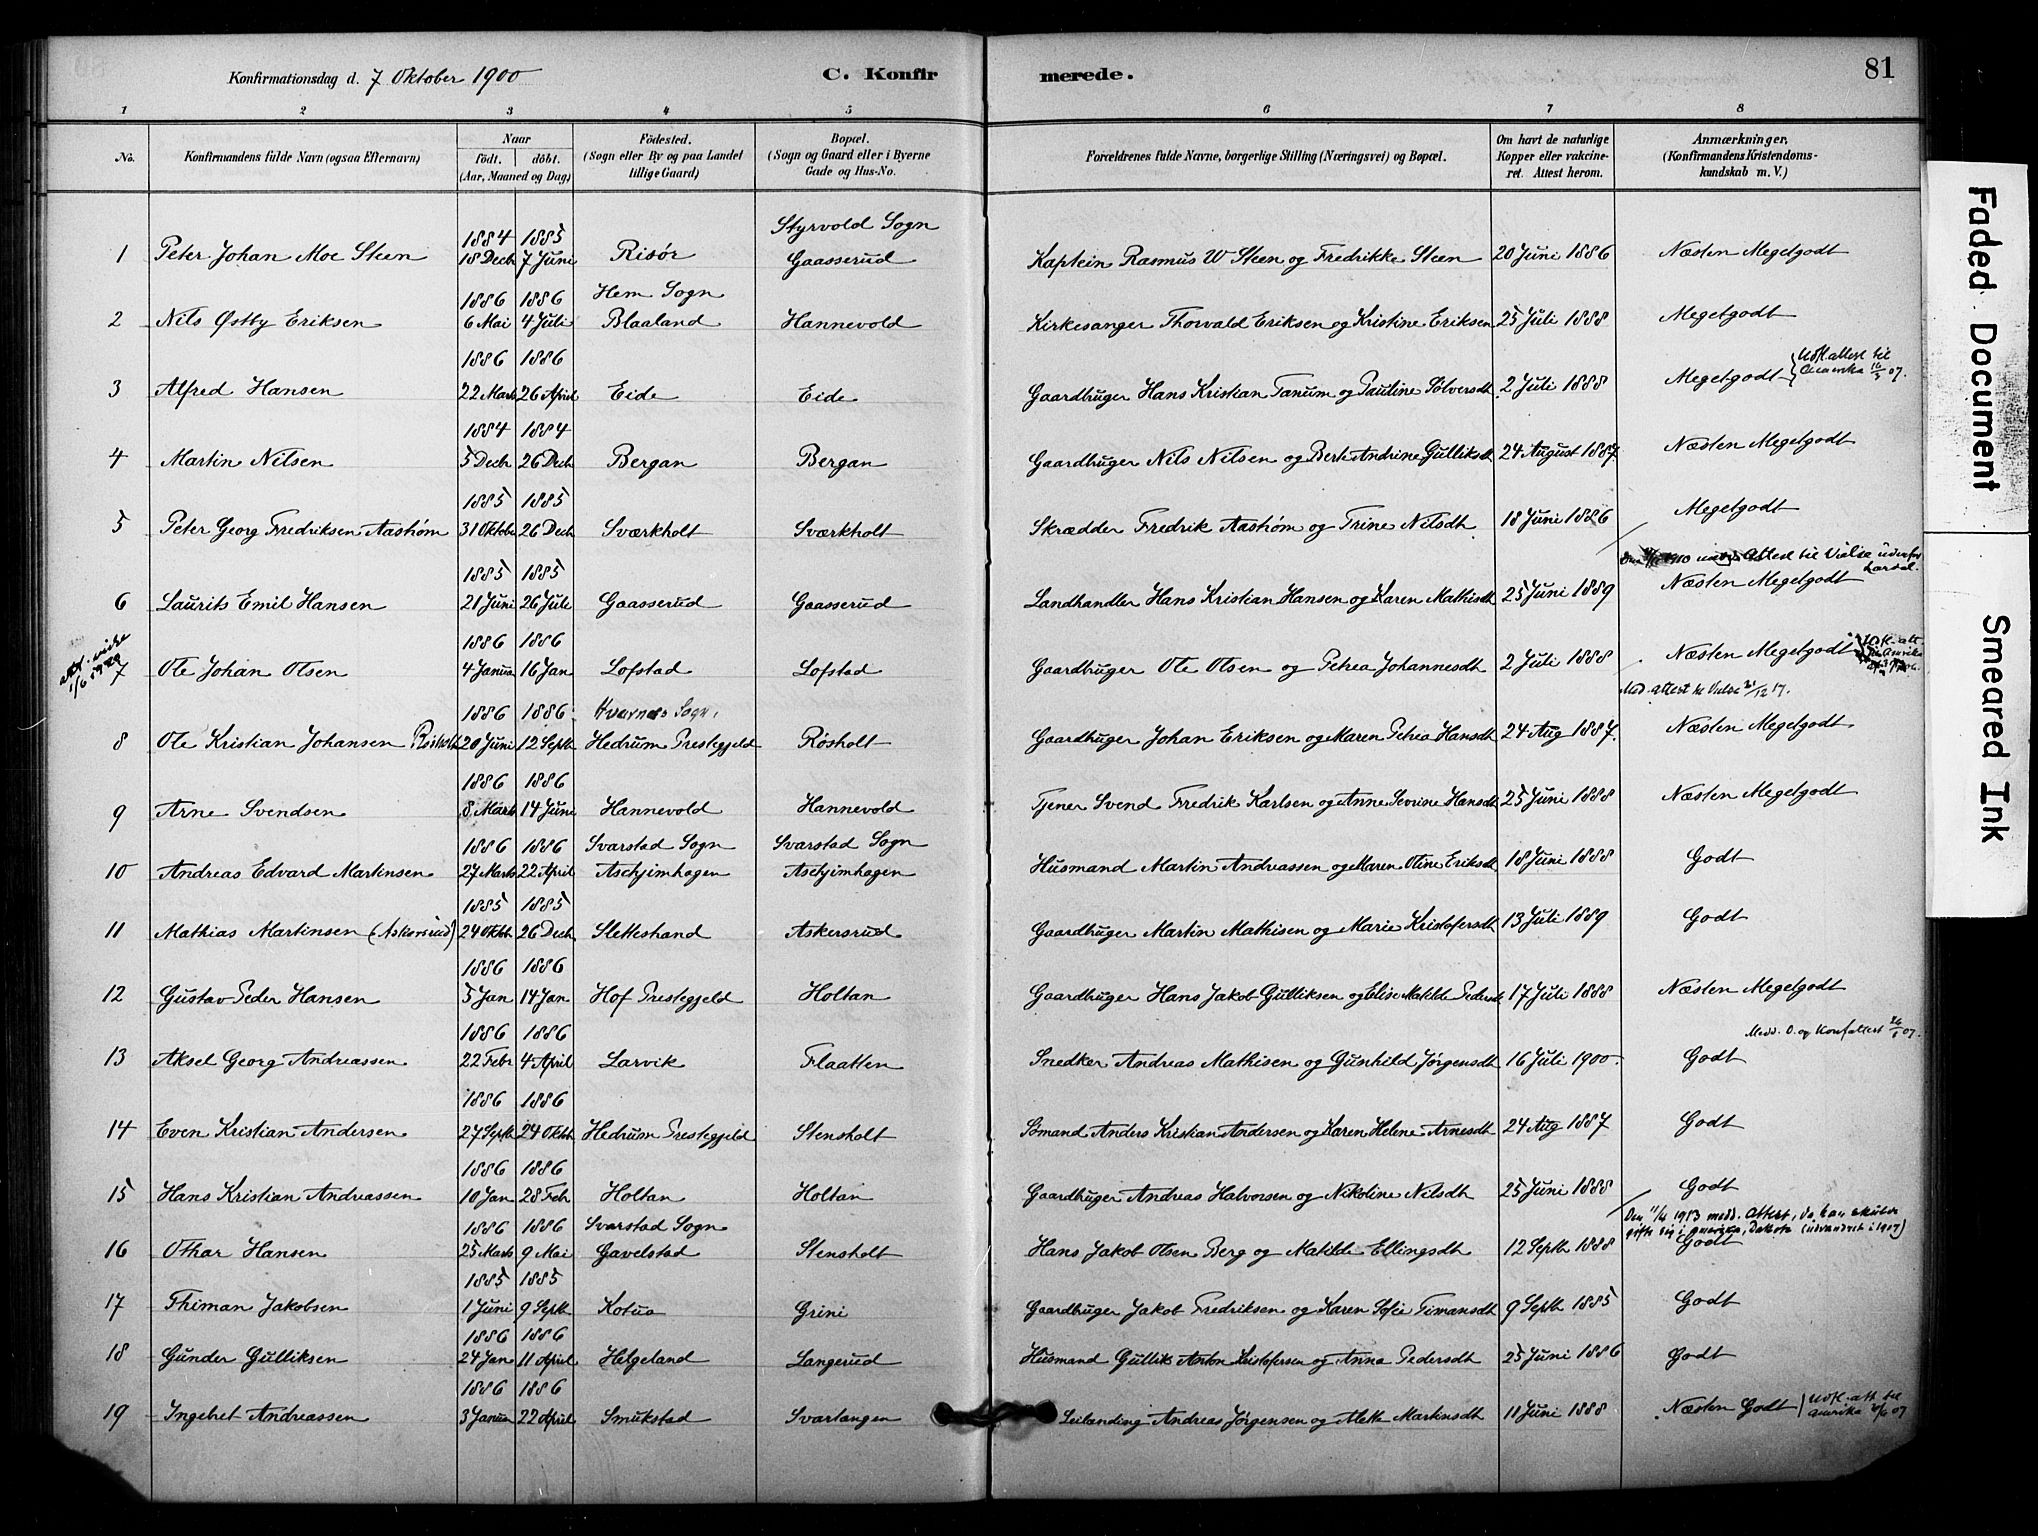 Konfirmationsdag d. 7 Oktober 1900
C. Konfir merede.
81
1 2 3 4 5 6 7 8
No.
Konfirmandens fulde Navn (ogsaa Efternavn)
Naar
födt. döbt.
(Aar, Maaned og Dag)
Födested.
(Sogn eller By og paa Landet
tillige Gaard)
Bopæl.
(Sogn og Gaard eller i Byerne
Gade og Hus-No.
Forældrenes fulde Navne, borgerlige Stilling (Næringsvei) og Bopæl.
Om havt de naturlige
Kopper eller vakcine-
ret. Attest herom.
Anmærkninger,
(Konfirmandens Kristendoms-
kundskab m. V.)
1884 1885 Styrvold Sogn
1 Peter Johan Moe Steen 18 Decb 7 Juni Risør Gaasserud Kaptein Rasmus W Steen og Fredrikke Steen 20 Juni 1886 Næsten Megetgodt
1886 1886 Hem Sogn
2 Nils Østby Eriksen 6 Mai 4 Juli Blaaland Hannevold Kirkesanger Thorvald Eriksen og Kristine Eriksen 25 Juli 1888 Megetgodt
1886 1886
3 Alfred Hansen 22 Marts 26 April Eide Eide Gaardbruger Hans Kristian Tanum og Pauline Sølversdt 2 Juli 1888 Megetgodt Udfl. attest til Amerika 07.
1884 1884
4 Martin Nilsen 5 Decb 26 Decb Bergan Bergan Gaardbruger Nils Nilsen og Berte Andrine Gulliksdt 24 August 1887 Næsten Megetgodt
1885 1885
5 Peter Georg Fredriksen Aashøm 31 Oktober 26 Decb Sværkholt Sværkholt Skrædder Fredrik Aashøm og Trine Nilsdt 18 Juni 1886 Megetgodt
1910 Attest til Vielse udenfor
1885 1885
6 Laurits Emil Hansen 21 Juni 26 Juli Gaasserud Gaasserud Landhandler Hans Kristian Hansen og Karen Mathisdt 25 Juni 1889 Næsten Megetgodt
1886 1886
7 Ole Johan Olsen 4 Januar 16 Jan Lofstad Lofstad Gaardbruger Ole Olsen og Petrea Johannesdt 2 Juli 1888 Næsten Megetgodt
Med. attest til Vielse 21/12 17.
1886 1886 Kvarnes Sogn
8 Ole Kristian Johansen Røsholt 20 Juni 12 Septb Hedrum Prestegjeld Røsholt Gaardbruger Johan Eriksen og Maren Petrea Hansdt 24 Aug 1887. Næsten Megetgodt
1886 1886
9 Arne Svendsen 8 Marts 14 Juni Hannevold Hannevold Tjener Svend Fredrik Karlsen og Anne Sevrine Hansdt 25 Juni 1888 Næsten Megetgodt
1886 1886 Svarstad Sogn Svarstad Sogn
10 Andreas Edvard Martinsen 27 Marts 22 April Aschjimhagen Aschjimhagen Husmand Martin Andreassen og Maren Oline Eriksdt 18 Juni 1888 Godt
1885 1885
11 Mathias Martinsen (Askersrud) 24 Oktb 26 Decb Slettshand Askersrud Gaardbruger Martin Mathisen og Marie Kristofersdt 13 Juli 1889 Godt
1886 1886
12 Gustav Peder Hansen 5 Jan 14 Jan Hof Prestegjeld Holtan Gaardbruger Hans Jakob Gulliksen og Elise Matilde Pedersdt 17 Juli 1888 Næsten Megetgodt
Medd. D. og Konf attest 07.
1886 1886
13 Aksel Georg Andreassen 22 Febr 4 April Larvik Flaatten Snedker Andreas Mathisen og Gunhild Jørgensdt 16 Juli 1900 Godt
1886 1886
14 Even Kristian Andersen 27 Septb 24 Oktb Hedrum Prestegjeld Stensholt Sømand Anders Kristian Andersen og Karen Helene Arnesdt 24 Aug 1887 Godt
1886 1886
15 Hans Kristian Andreassen 10 Jan 28 Feb Holtan Holtan Gaardbruger Andreas Halvorsen og Nikoline Nilsdt 25 Juni 1888 Godt
Den 11/4 1913 medd. Attest, da han skulde
gifte sig i Amerika, Dakota (udvandret i 1907)
1886 1886 Svarstad Sogn
16 Othar Hansen 25 Marts 9 Mai Gavelstad Stensholt Hans Jakob Olsen Berg og Matilde Ellingsdt 12 Septb 1888 Godt
1885 1885
17 Thiman Jakobsen 1 Juni 9 Septb Kotua Grini Gaardbruger Jakob Fredriksen og Karen Sofie Timansdt 9 Septb 1885 Godt
1886 1886
18 Gunder Gulliksen 24 Jan 11 April Helgeland Langerud Husmand Gullik Anton Kristofersen og Anna Pedersdt 25 Juni 1886 Godt
1886 1886
19 Ingebret Andreassen 3 Januar 22 April Smukstad Svartangen Leilanding Andreas Jørgensen og Mette Martinsdt 11 Juni 1888 Næsten Godt Udfl. att til Amerika 07
Faded Document
Smeared Ink